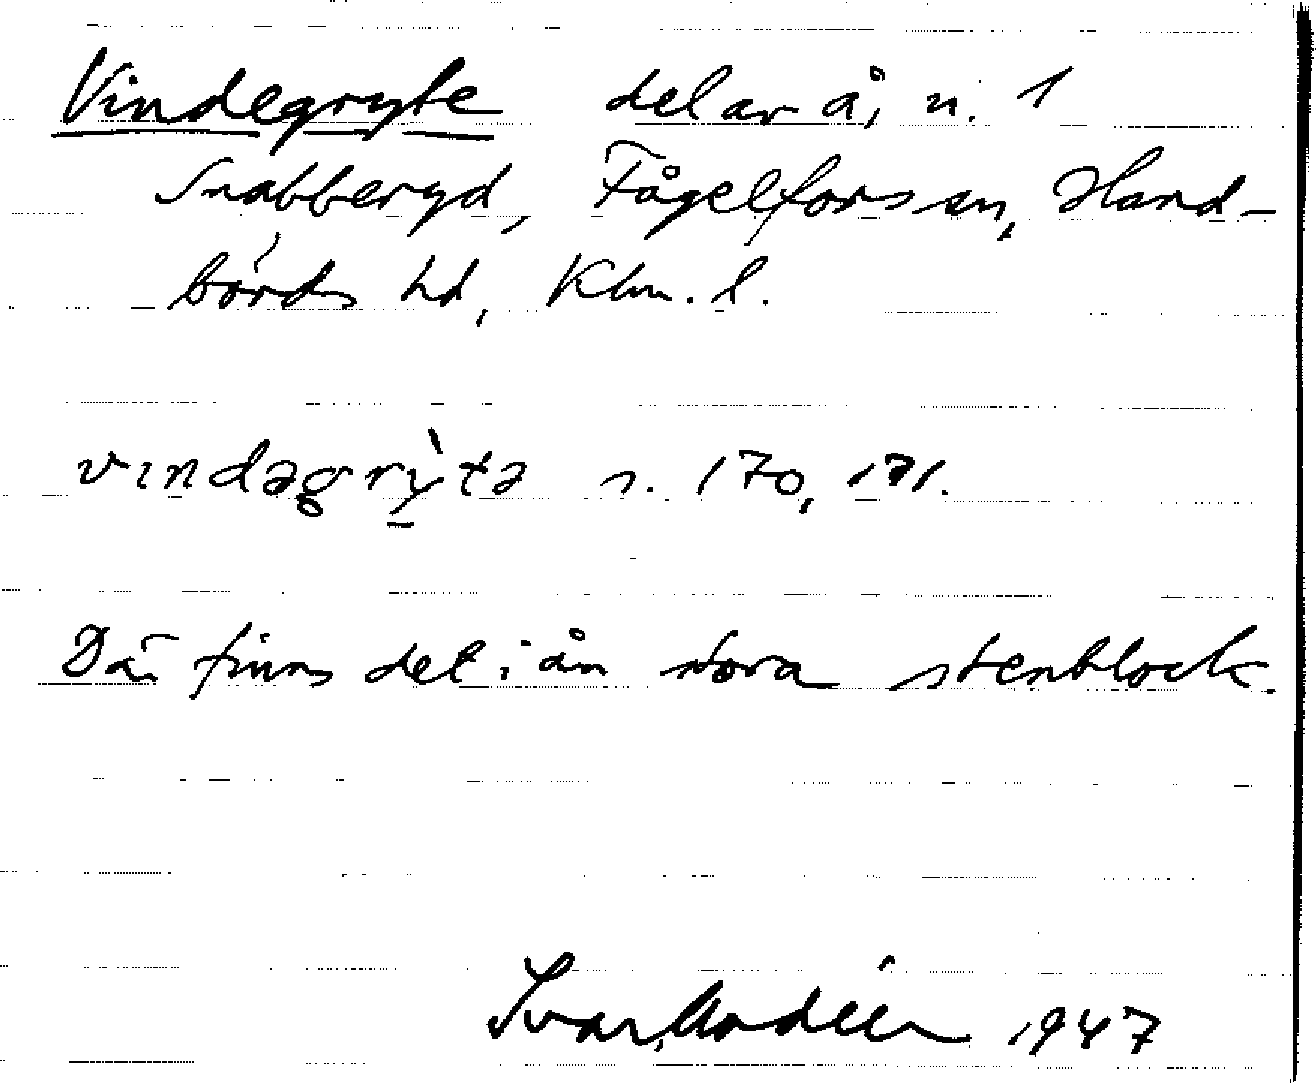 Vindegryte del av å, n. 1
Snabberyd, Fågelfors sn, Hand-
börds hd, Klm. l.
vindəgrỳtə s. 170, 171.
Där finns det i ån stora stenblock.
Ivar Modéer 1947